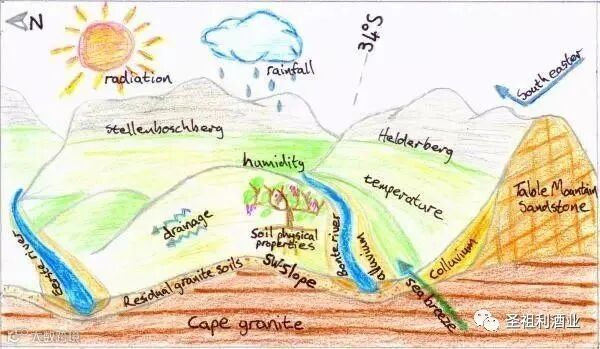 N
radiation
rainfall
34°S
South easter
Stellenboschberg
Helderberg
humidity
temperature
Table Mountain
Sandstone
drainage
Soil physical
properties
Eerste river
Bonte river
alluvium
Colluvium
SW slope
Residual granite soils
sea breeze
Cape granite
大数跨境
圣祖利酒业